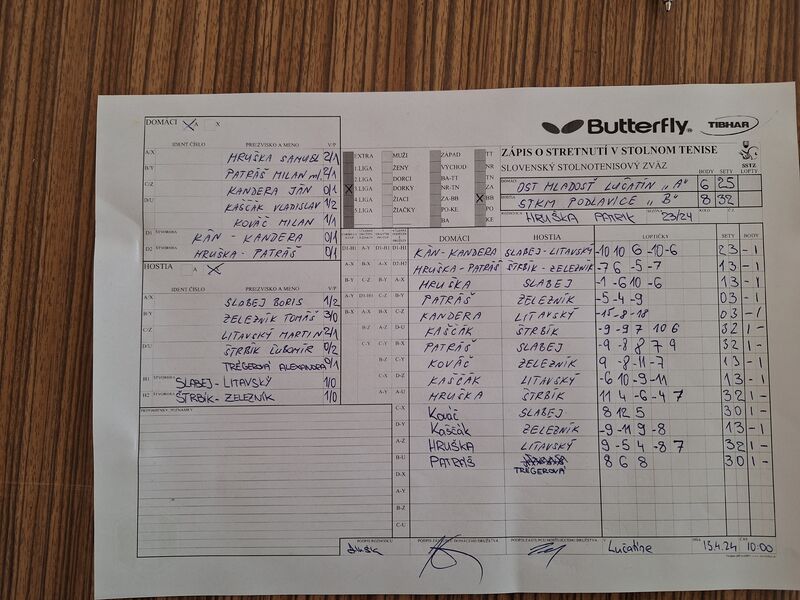 DOMÁCI A X
Butterfly TIBHAR
IDENT ČÍSLO PRIEZVISKO A MENO V/P
ZÁPIS O STRETNUTÍ V STOLNOM TENISE
SLOVENSKÝ STOLNOTENISOVÝ ZVÄZ
SSTZ
BODY SETY LOPTY
A/X HRUŠKA SAMUEL 2/1
B/Y PATRÁŠ MILAN ml. 2/1
C/Z KANDERA JÁN 0/1
D/U KAŠČÁK VLADISLAV 1/2
KOVÁČ MILAN 1/1
D1 ŠTVORHRA KÁN - KANDERA 0/1
D2 ŠTVORHRA HRUŠKA - PATRÁŠ 0/1
EXTRA MUŽI ZÁPAD TT
1.LIGA ŽENY VÝCHOD NR
2.LIGA DORCI BA-TT TN
3.LIGA DORKY NR-TN ZA
4.LIGA ŽIACI ZA-BB BB
5.LIGA ŽIAČKY PO-KE PO
BA KE
DOMÁCI OST MLADOSŤ LUČATÍN "A" 6 25
HOSTIA STKM PODLAVICE "B" 8 32
HRUŠKA PATRIK 23/24
HOSTIA A X
IDENT ČÍSLO PRIEZVISKO A MENO V/P
A/X SLABEJ BORIS 1/2
B/Y ŽELEZNÍK TOMÁŠ 3/0
C/Z LITAVSKÝ MARTIN 2/1
D/U ŠTRBÍK ĽUBOMÍR 0/2
TRÉGEROVÁ ALEXANDRA 0/1
H1 ŠTVORHRA SLABEJ - LITAVSKÝ 1/0
H2 ŠTVORHRA ŠTRBÍK - ŽELEZNÍK 1/0
PRIPOMIENKY, POZNÁMKY
DOMÁCI HOSTIA LOPTIČKY SETY BODY
KÁN - KANDERA SLABEJ - LITAVSKÝ -10 10 6 -10 -6 23 -1
HRUŠKA - PATRÁŠ ŠTRBÍK - ŽELEZNÍK -7 6 -5 -7 13 -1
HRUŠKA SLABEJ -1 -6 10 -6 13 -1
PATRÁŠ ŽELEZNÍK -5 -4 -9 03 -1
KANDERA LITAVSKÝ -15 -8 -18 03 -1
KAŠČÁK ŠTRBÍK -9 -9 7 10 6 32 1-
PATRÁŠ SLABEJ -9 -8 8 7 9 32 1-
KOVÁČ ŽELEZNÍK 9 -8 -11 -7 13 -1
KAŠČÁK LITAVSKÝ -6 10 -9 -11 13 -1
HRUŠKA ŠTRBÍK 11 4 -6 -4 7 32 1-
KOVÁČ SLABEJ 8 12 5 30 1-
KAŠČÁK ŽELEZNÍK -9 -11 9 -8 13 -1
HRUŠKA LITAVSKÝ 9 -5 4 -8 7 32 1-
PATRÁŠ TRÉGEROVÁ 8 6 8 30 1-
PODPIS ROZHODCU
Lučatíne
13.4.24 10:00